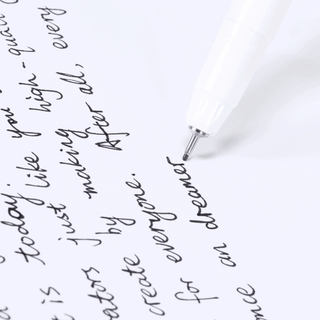 is today.
ators just like you
create by making high-quali
for everyone. After all, every
ence can dreamer